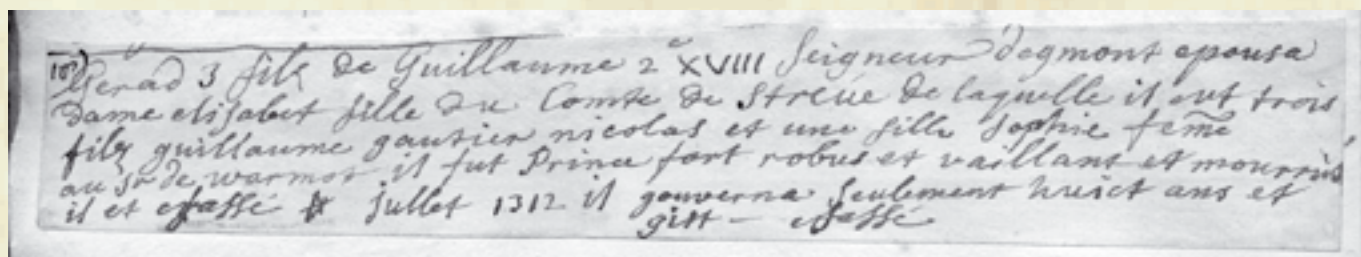 Gerad 3 filz de Guillaume 2e XVIII Seigneur degmont epousa
Dame elisabet fille du Comte de Streüe de laquelle il eut trois
filz guillaume gautier nicolas et une fille Sophie fem̃e
au Sr de warmot il fut Prince fort robus et vaillant et mourrut
il et effassé Jullet 1312 il gouverna Seulement huict ans et
gist — effassé